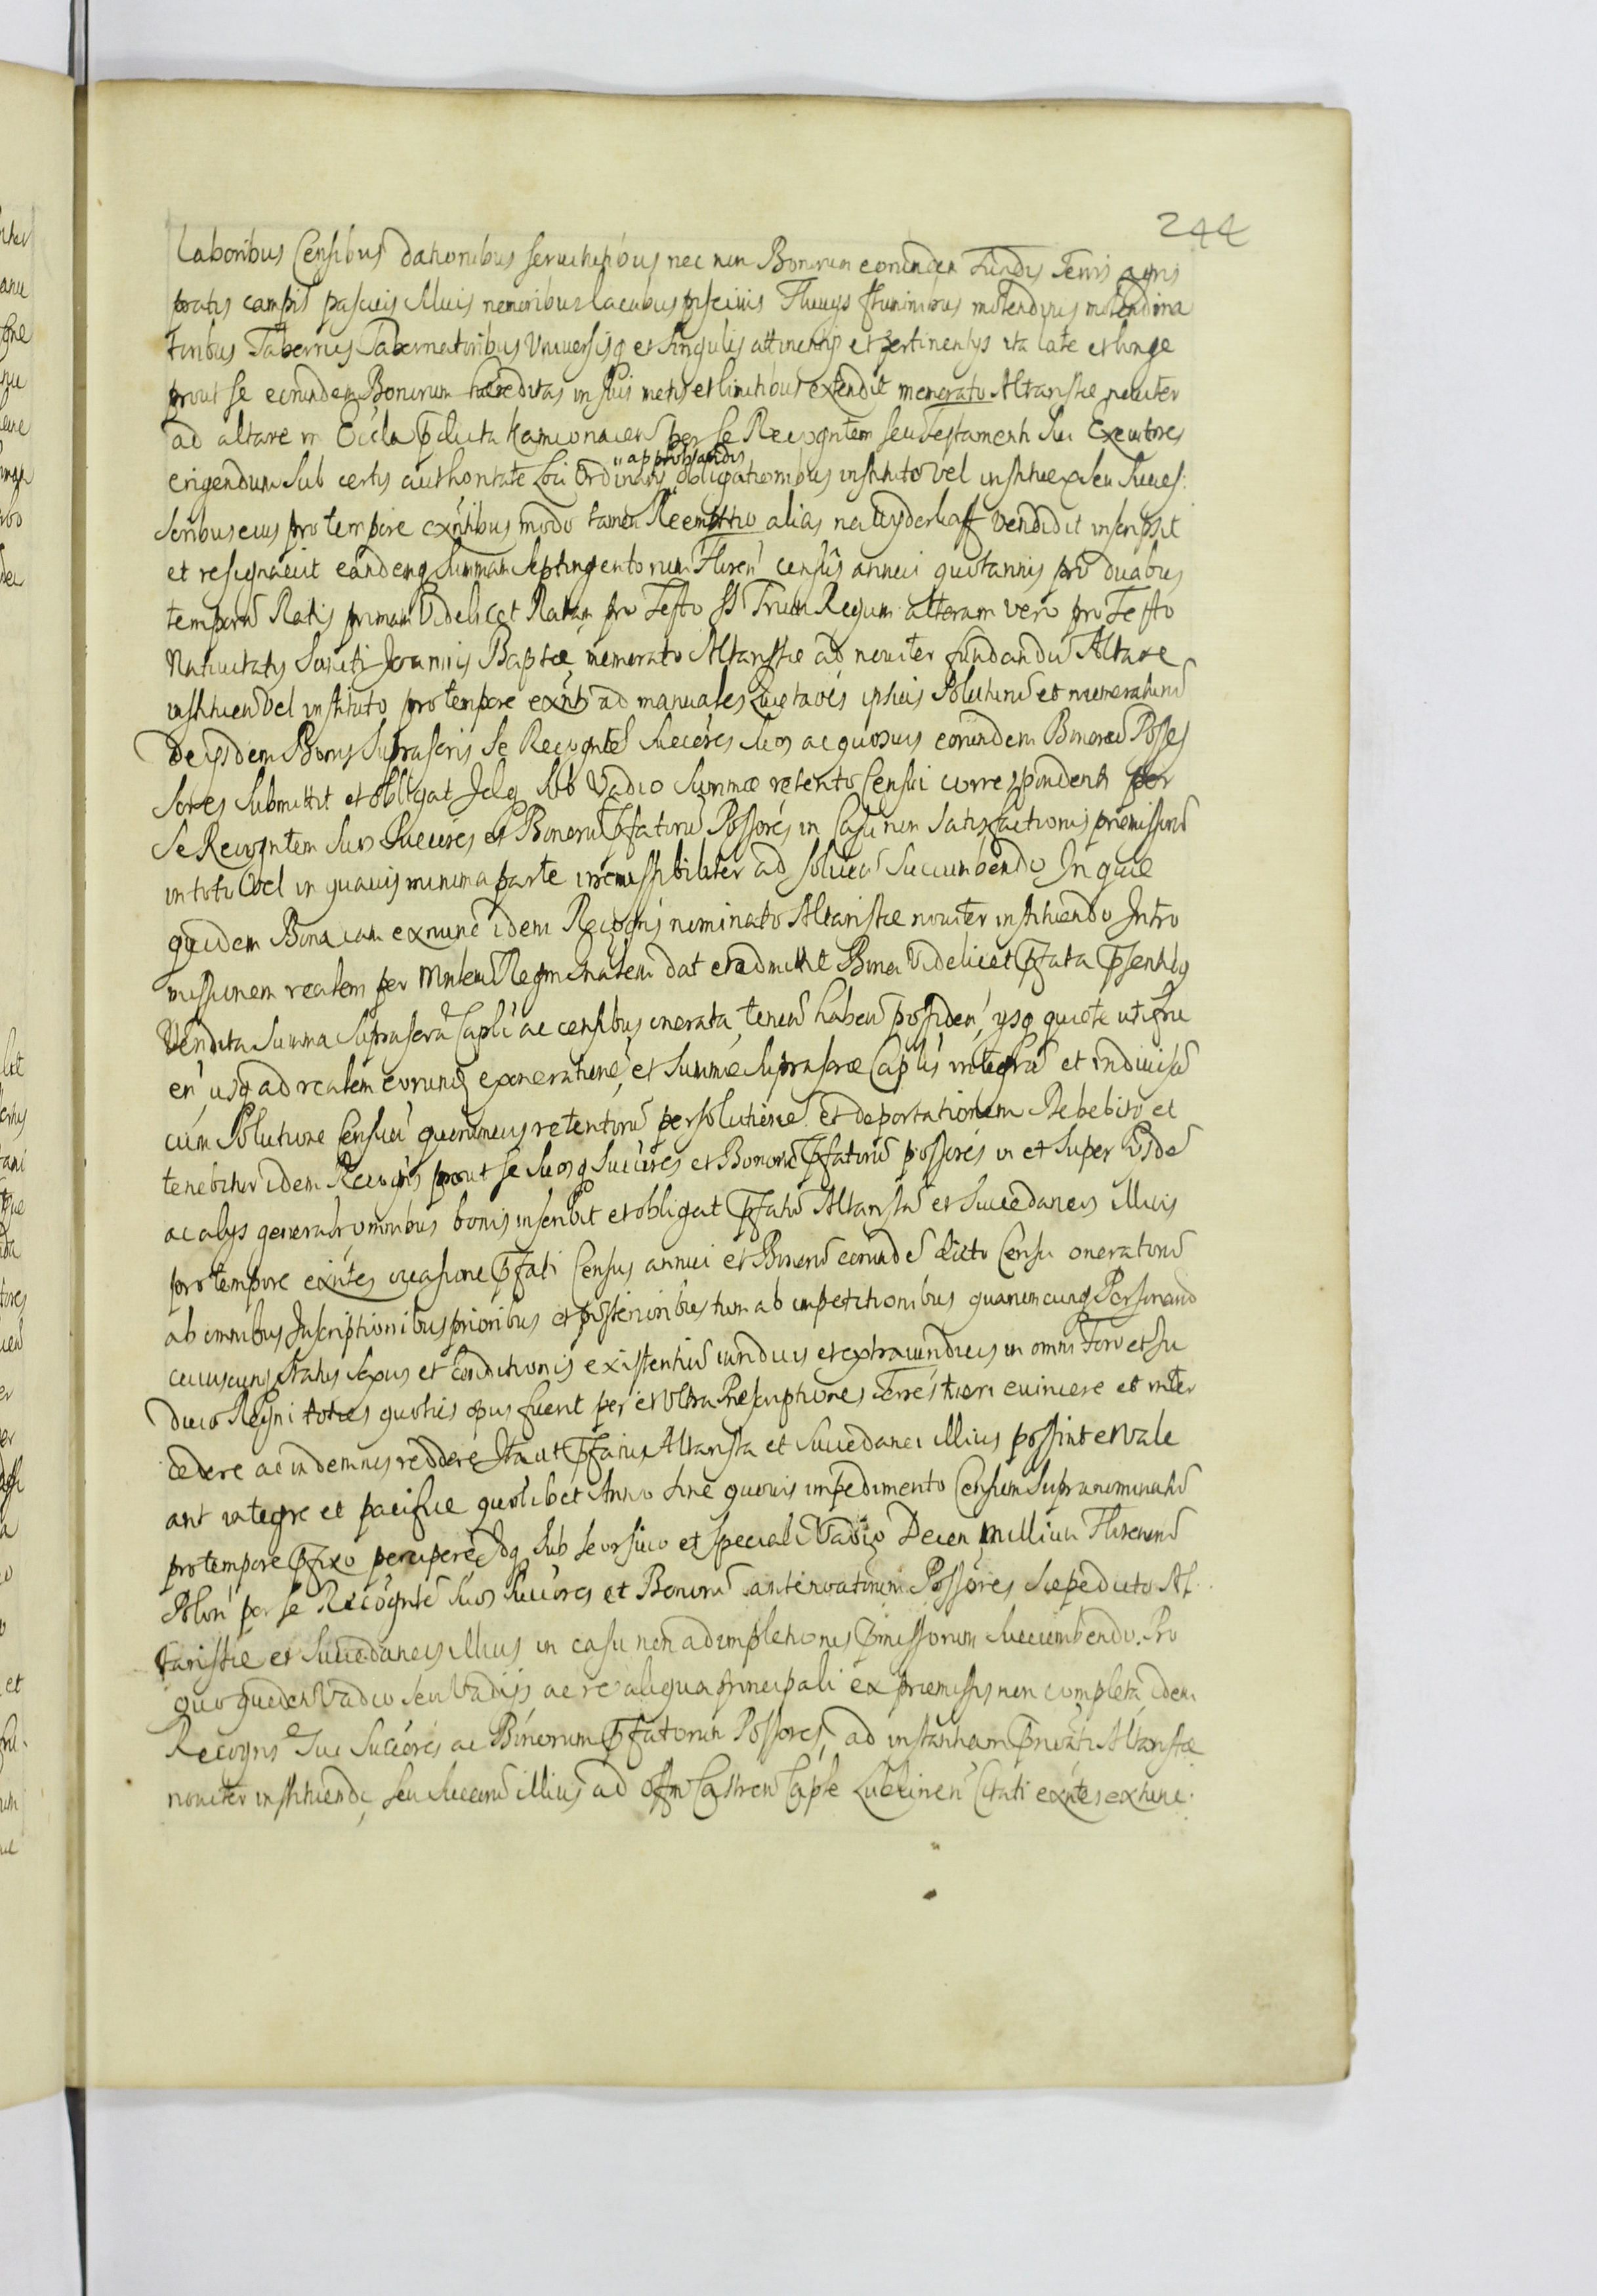 244
laboribus Censibus dationibus servitutibus nec non Bonorum eorundem Fundis Terris agris
pratis campis pascuis Siluis nemoribus lacubus piscinis Fluuys fluminibus molendinis molendina
toribus Tabernis Tabernatoribus Vniuersisq et singulis attinentys et pertinentys ita late et longe
prout se eorundem Bonorum hæreditas in suis metis et limitibus extendit memorato Altaristæ nouiter
ad altare in Eccla pdicta Kamionacen per se Recogntem seu Testamenti sui Exequtores
erigendum sub certis authoritate Loci Ordinarii obligationibus instituto vel instituen seu Succes:
"approbandis
soribus eius pro tempore exntibus modo tamen Reemptio alias na wyderkaff vendidit inscripsit
et resignauit eandemq summam septingentorum Floren census annui quotannis pro duabus
temporu Ratis primam Videlicet Ratam pro Festo SS Trium Regum alteram vero pro Festo
Natiuitatis Sancti Joannis Baptæ memorato Altaristæ ad nouiter fundandu Altare
instituen vel instituto pro tempore exnti ad manuales ipsius Soluturus et numeraturus
De ysdem Bonis suprascris se Recogntes Succores suos ac quosuis eorundem Bonoru Posses
sores submittit et obligat Idq sub Vadio summæ retento Censui correspondenti per
se Recogntem suos Succores et Bonoru pfatoru Possores in Casu non satisfactionis præmissoru
in toto Vel in quauis minima parte irremissibiliter ad soluen succumbendo In quæ
quidem Bona iam exnunc idem Recogns nominato Altaristæ nouiter instituendo Intro
missionem realem per Mnlem Regni dat et admittit Bona Videlicet pfata psentibq
Vendita summa suprascra Capli ac censibus onerata, tenen haben possiden, ysq quiete vtifru
en, vsq ad realem eorundq exonerationé, et summæ suprascræ Caplis integra et indiuisa
cum Solutione Censuu quorumuis retentoru persolutione et deportationem Debebit et
tenebitur idem Recogns prout se suosq Succores et Bonoru pfatoru possores in et super ysde
ac alys generalr omnibus bonis inscribit et obligat pfatu Altarista et Succedaneos illius
pro tempore exntes occasione pfati Census annui et Bonoru eorunde dicto Censu oneratoru
ab omnibus Inscriptionibus prioribus et posterioribus tum ab impetitionibus quarumcunq Personaru
cuiuscunq status sexus et conditionis existentiu iuridicis et extraiuridicis in omni Foro et Iu
dicio Regni toties quoties opus fuerit per et vltra Præscriptiones Terrestriem euincere et inter
cedere ac indemnes reddere Ita ut pfatus Altarista et Succedanei illius possint et Vale
ant integre et pacifice quolibet Anno sine quouis impedimento Censum supranominatu
pro tempore pfixo percipere Idq sub seorsiuo et speciali Vadio Decem Millium Florenoru
Polon per se Recognte suos Succores et Bonoru antenoatorum Possores sæpedicto Al
taristæ et Succedaneis illius in casu non adimpletionis pmissorum succumbendo. Pro
quo quidem Vadio seu Vadijs ac re aliqua principali ex præmissis non completa idem
Recogns Sui Succores ac Bonorum pfatorum Possores, ad instantiam pnoati Altaristæ
nouiter instituendi, seu Succoru illius ad Offm Castren Caple Lublinen Citati exntes extunc.